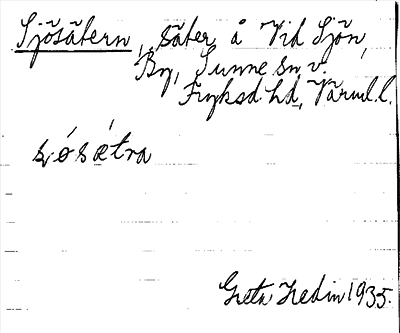 Sjösätern, säter å Vid Sjön,
By, Sunne sn v.
Fryksd. hd, Värml. l.
sjósætra
Greta Hedin 1935.